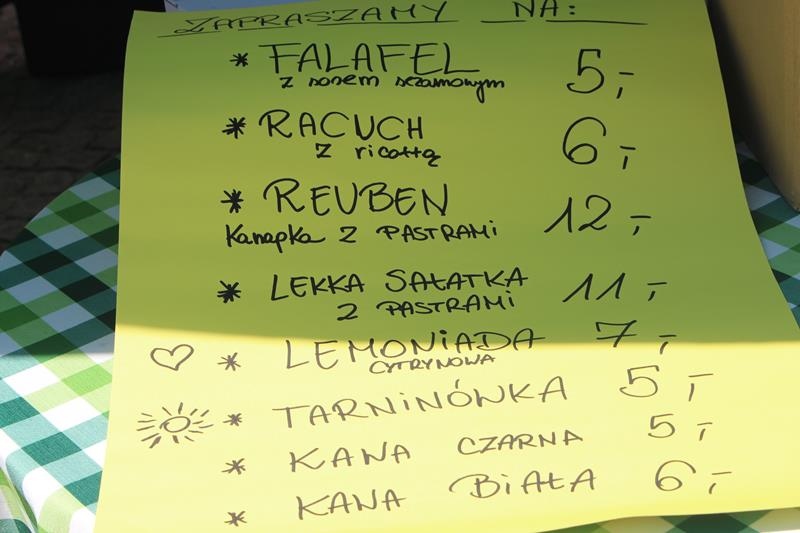 ZAPRASZAMY NA:
* FALAFEL 5,-
z sosem sezamowym
* RACUCH 6,-
z ricottą
* REUBEN 12,-
Kanapka z PASTRAMI
* LEKKA SAŁATKA 11,-
z PASTRAMI
♡ * LEMONiADA 7,-
CYTRYNOWA
* TARNINÓWKA 5,-
* KAWA CZARNA 5,-
* KAWA BiAŁA 6,-